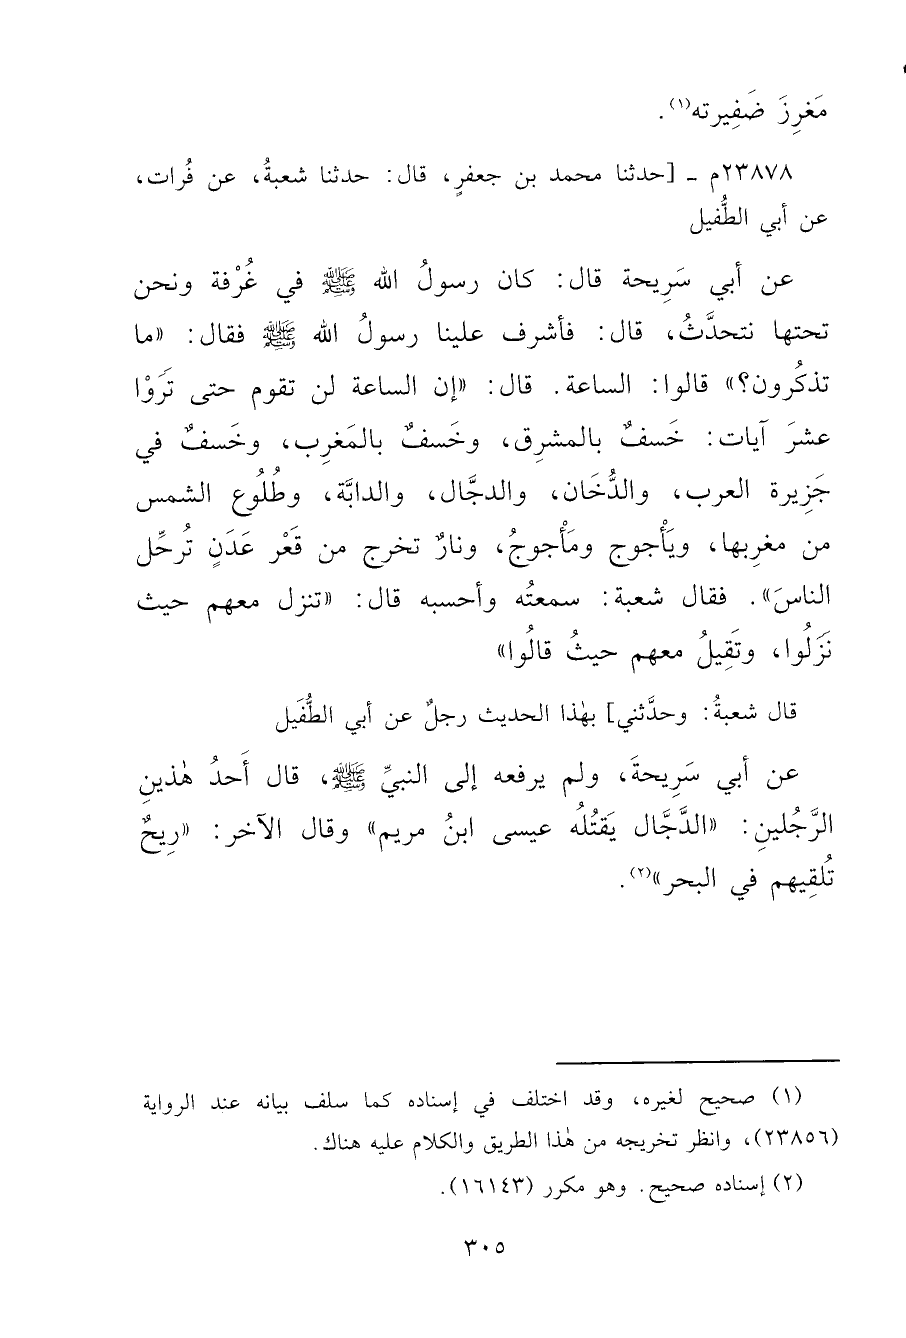 مَغرِزَ ضَفِيرته(١).
٢٣٨٧٨م ـ [حدثنا محمد بن جعفرٍ، قال: حدثنا شعبةُ، عن فُرات،
عن أبي الطُّفيل
عن أبي سَرِيحة قال: كان رسولُ الله ﷺ في غُرْفة ونحن
تحتها نتحدَّثُ، قال: فأشرف علينا رسولُ الله ﷺ فقال: «ما
تذكُرون؟» قالوا: الساعة. قال: «إن الساعة لن تقوم حتى تَرَوْا
عشرَ آيات: خَسفٌ بالمشرِق، وخَسفٌ بالمَغرِب، وخَسفٌ في
جَزِيرة العرب، والدُّخَان، والدجَّال، والدابَّة، وطُلُوع الشمس
من مغربِها، ويَأْجوج ومَأْجوجُ، ونارٌ تخرج من قَعْر عَدَنٍ تُرحِّل
الناسَ». فقال شعبة: سمعتُه وأحسبه قال: «تنزل معهم حيث
نَزَلُوا، وتَقِيلُ معهم حيثُ قالُوا»
قال شعبةُ: وحدَّثني] بهٰذا الحديث رجلٌ عن أبي الطُّفَيل
عن أبي سَرِيحةَ، ولم يرفعه إلى النبيِّ ﷺ، قال أَحدُ هٰذينِ
الرَّجُلينِ: «الدَّجَّال يَقتُلُه عيسى ابنُ مريم» وقال الآخر: «رِيحٌ
تُلقِيهم في البحر»(٢).
(١) صحيح لغيره، وقد اختلف في إسناده كما سلف بيانه عند الرواية
(٢٣٨٥٦)، وانظر تخريجه من هٰذا الطريق والكلام عليه هناك.
(٢) إسناده صحيح. وهو مكرر (١٦١٤٣).
٣٠٥